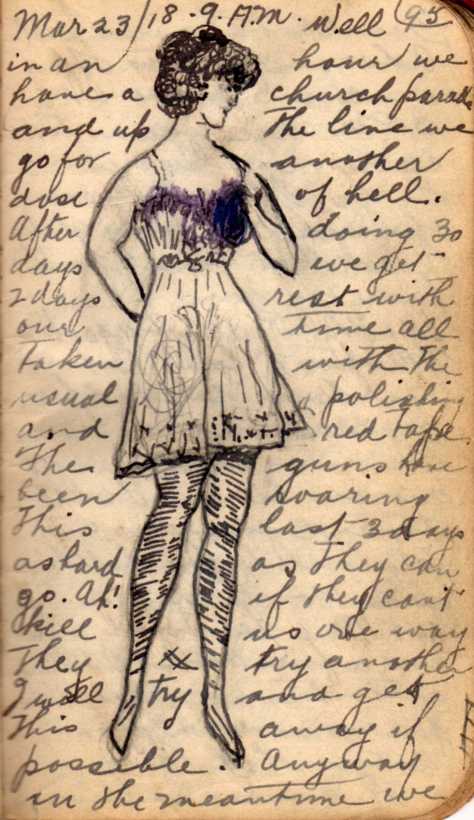 Mar 23/18. 9. A.M. Well 95
in an hour we
have a church parade
and up the line we
go for another
dose of hell.
After doing 30
days we get
2 days rest with
our time all
taken with the
usual polishing
and red tape.
The guns have
been roaring
This last 3 days
as hard as they can
go. Ah! if they can't
kill us one way
They try another
I will try and get
This away if
possible. Anyway
in the meantime we